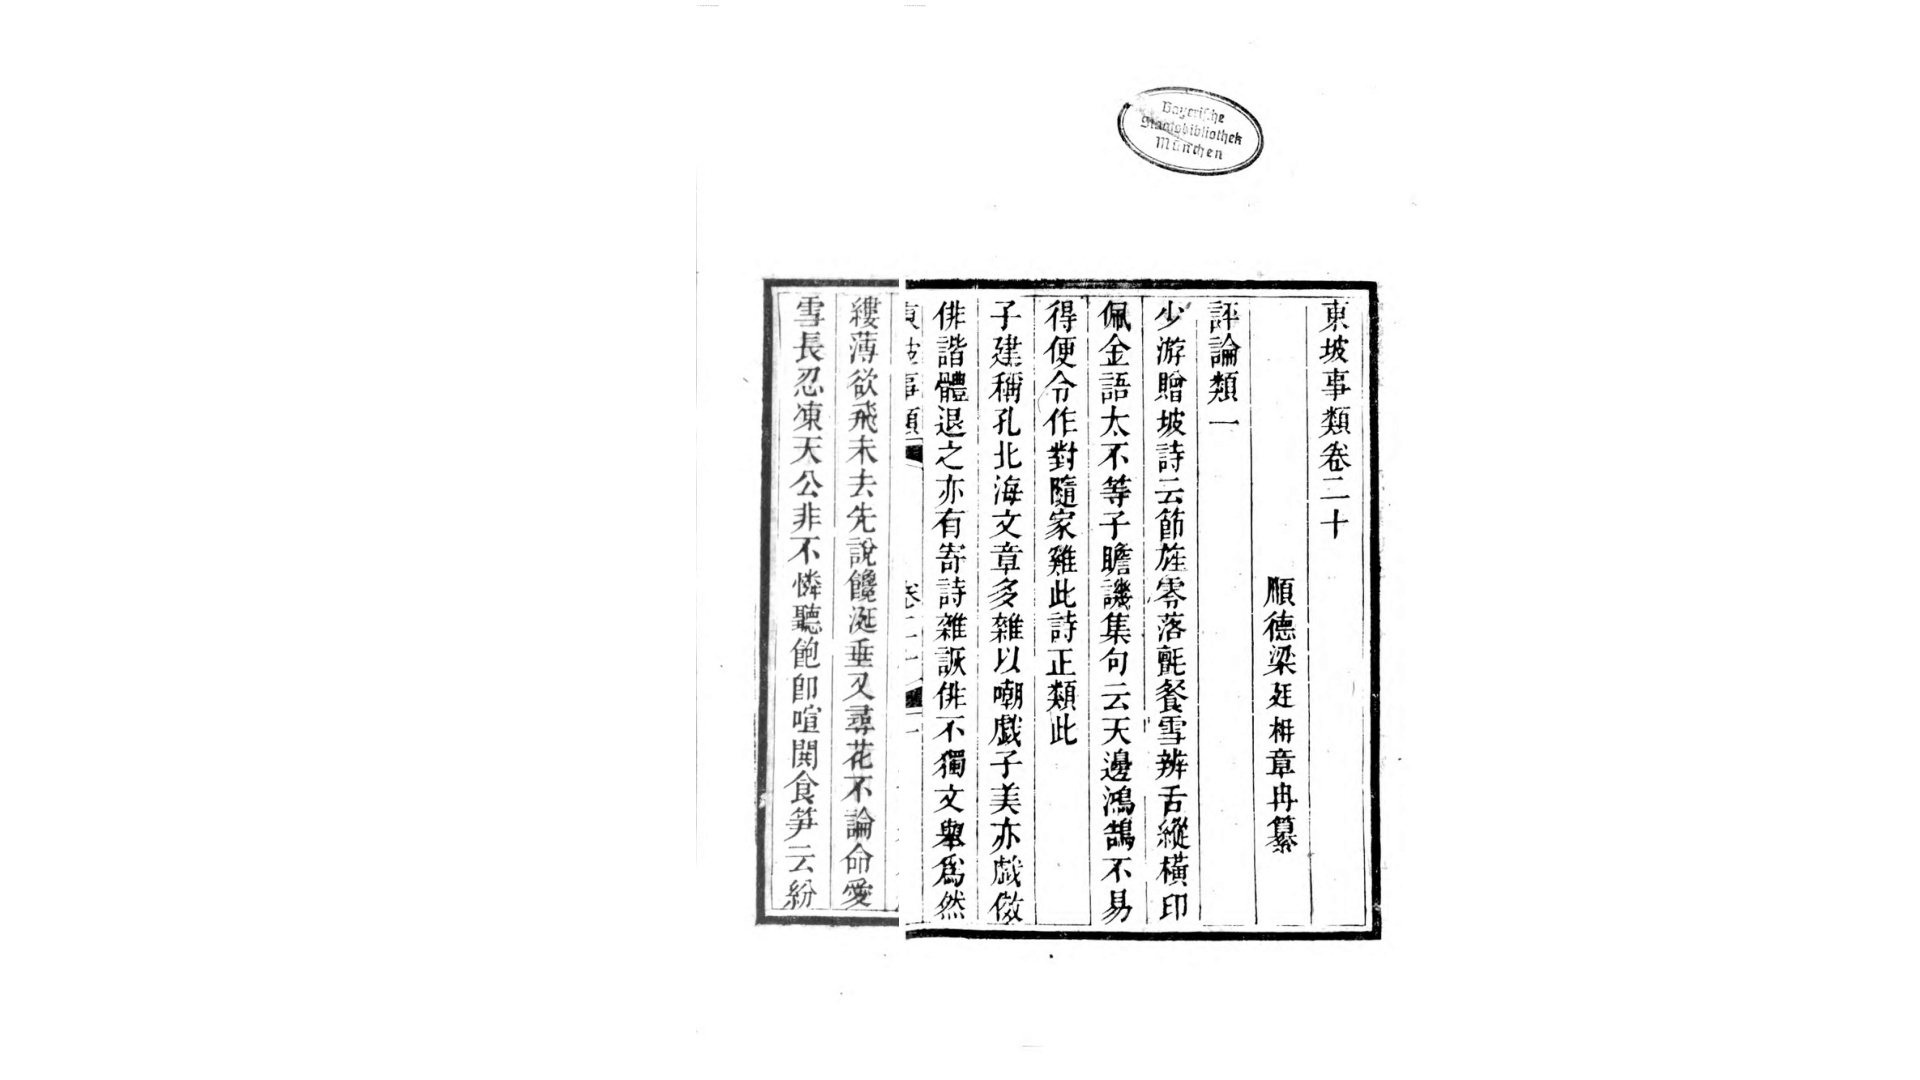 Bayerische
Staatsbibliothek
München
東坡事類卷二十
順德梁廷枏章冉纂
評論類一
少游贈坡詩云節旄零落氈餐雪辨舌縱橫印
佩金語太不等子瞻譏集句云天邊鴻鵠不易
得便令作對隨家雞此詩正類此
子建稱孔北海文章多雜以嘲戲子美亦戲傚
俳諧體退之亦有寄詩雜詼俳不獨文舉爲然
東坡事類 卷二十 一
縷薄欲飛未去先說饞涎垂又尋花不論命愛
雪長忍凍天公非不憐聽飽卽喧闐食笋云紛